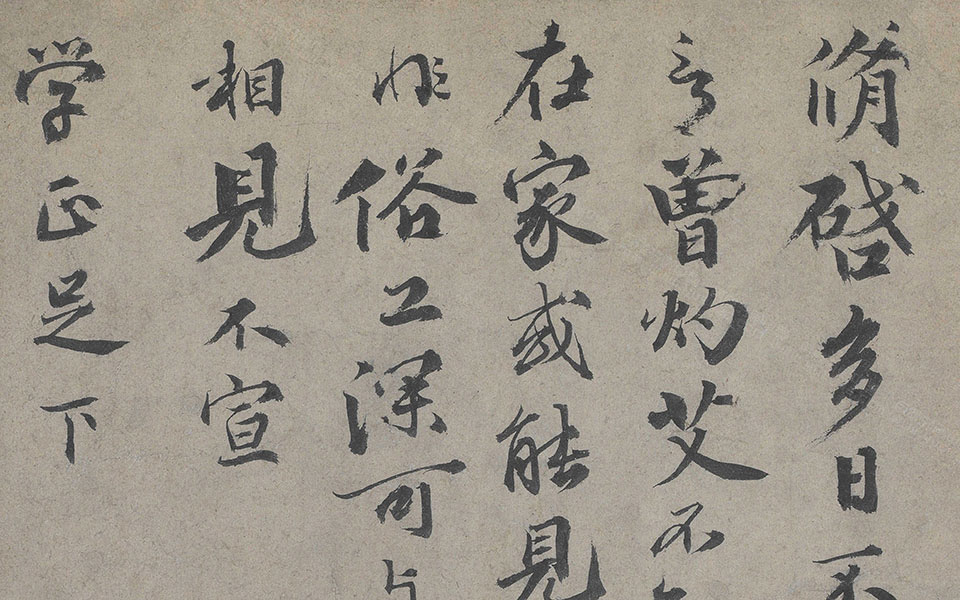 脩啓多日不
言曽灼艾不
在家或能見
非俗工深可与
相見不宣
学正足下